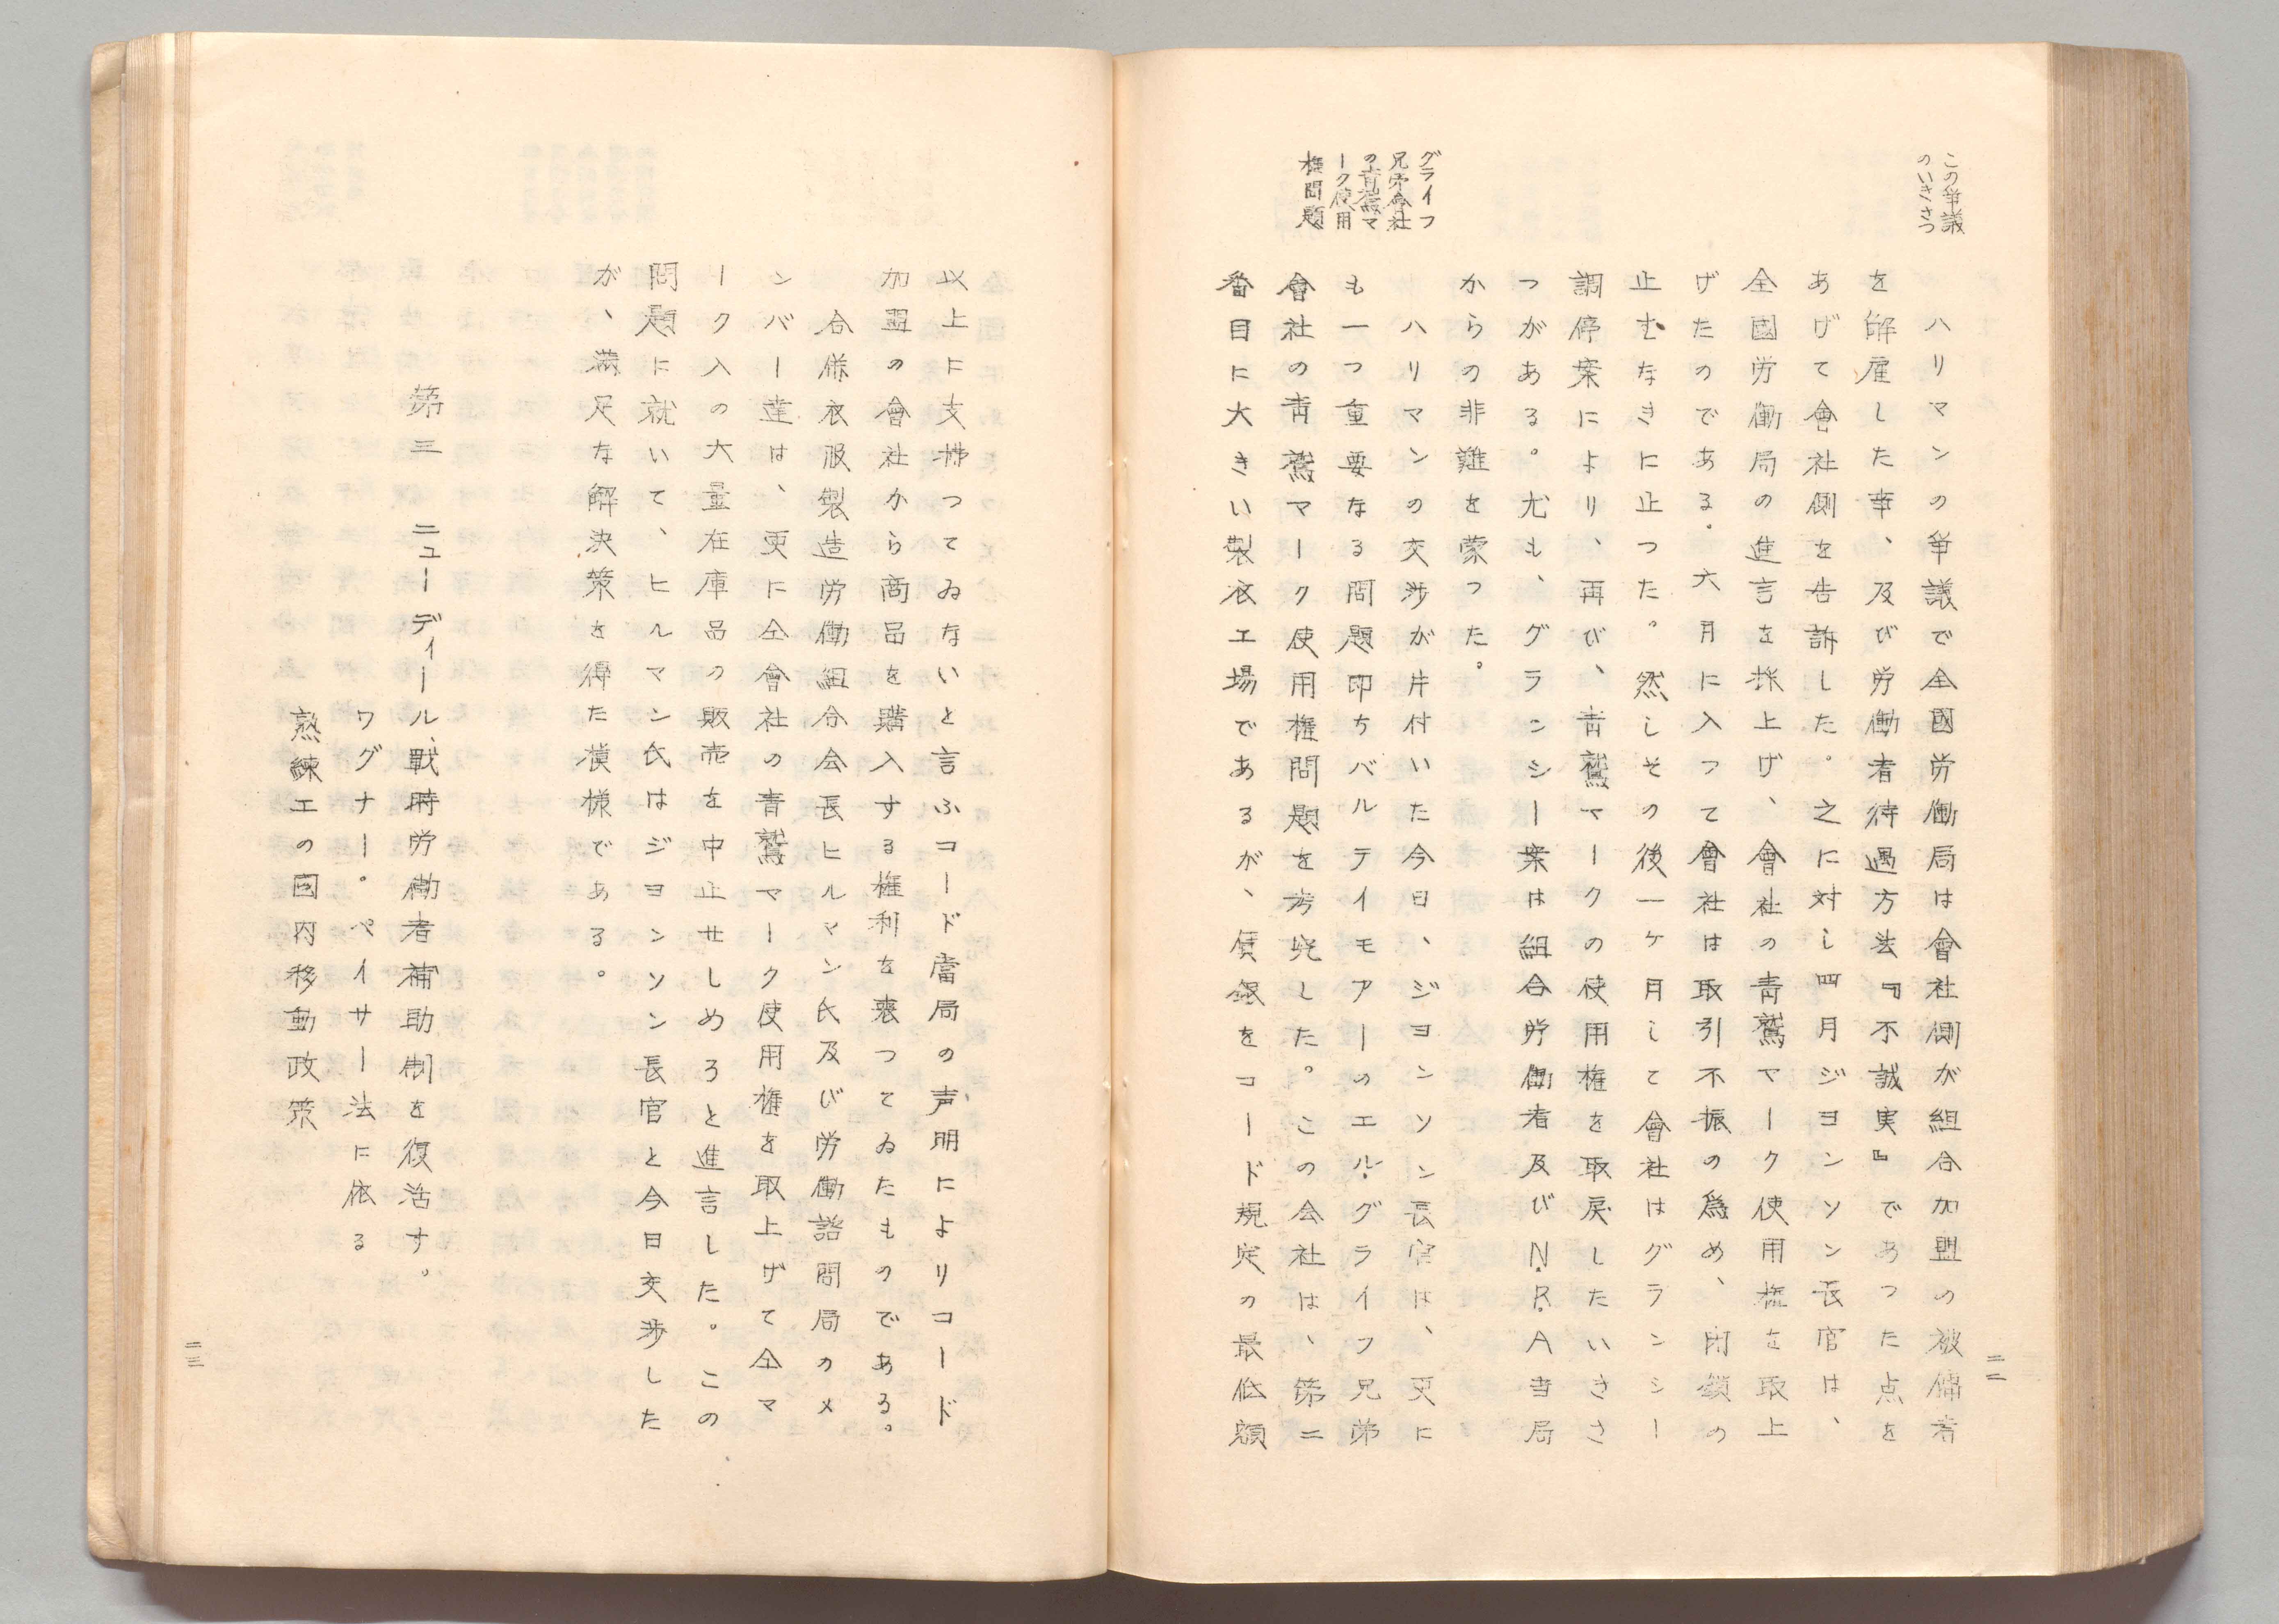 二二
この爭議
のいきさつ
ハリマンの爭議で全國労働局は會社側が組合加盟の被傭者
を解雇した事、及び労働者待遇方法『不誠実』であつた点を
あげて會社側を告訴した。之に対し四月ジヨンソン長官は、
全國労働局の進言を採上げ、會社の青鷲マーク使用権を取上
げたのである。六月に入つて會社は取引不振の爲め、閉鎖の
止むなきに止つた。然しその後一ケ月して會社はグランシー
調停案により、再び、青鷲マークの使用権を取戻したいきさ
つがある。尤も、グランシー案は組合労働者及びN.R.A当局
からの非難を蒙つた。
グライフ
兄弟会社
の青鷲マ
ーク使用
権問題
ハリマンの交渉が片付いた今日、ジヨンソン長官は、更に
も一つ重要なる問題即ちバルテイモアーのエル・グライフ兄弟
會社の青鷲マーク使用権問題を考究した。この会社は、第二
番目に大きい製衣工場であるが、賃銀をコード規定の最低額
以上に支拂つてゐないと言ふコード當局の声明によりコード
加盟の會社から商品を購入する権利を喪つてゐたものである。
合併衣服製造労働組合会長ヒルマン氏及び労働諮問局のメ
ンバー達は、更に全會社の青鷲マーク使用権を取上げて全マ
ーク入の大量在庫品の販売を中止せしめろと進言した。この
問題に就いて、ヒルマン氏はジヨンソン長官と今日交渉した
が、満足な解決策を得た模様である。
第三　ニューディール、戰時労働者補助制を復活す。
ワグナー。ペイサー法に依る
熟練工の國内移動政策
二三